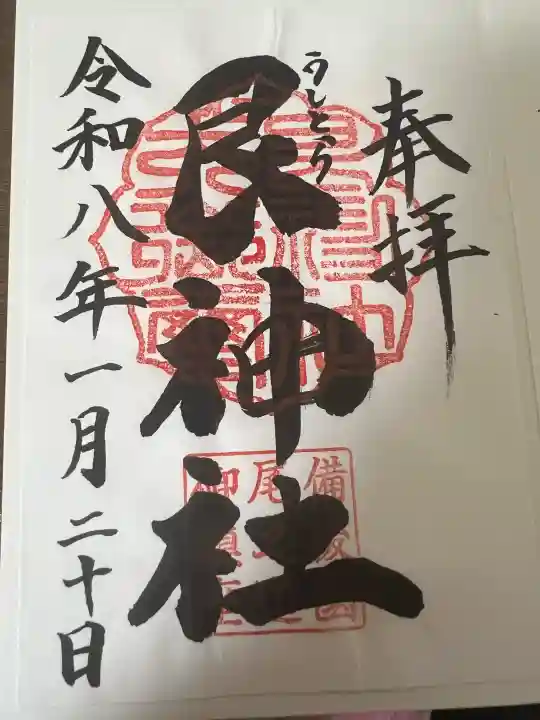 奉拝
うしとら
艮神社
令和八年一月二十日
備後国
尾道
御鎮座